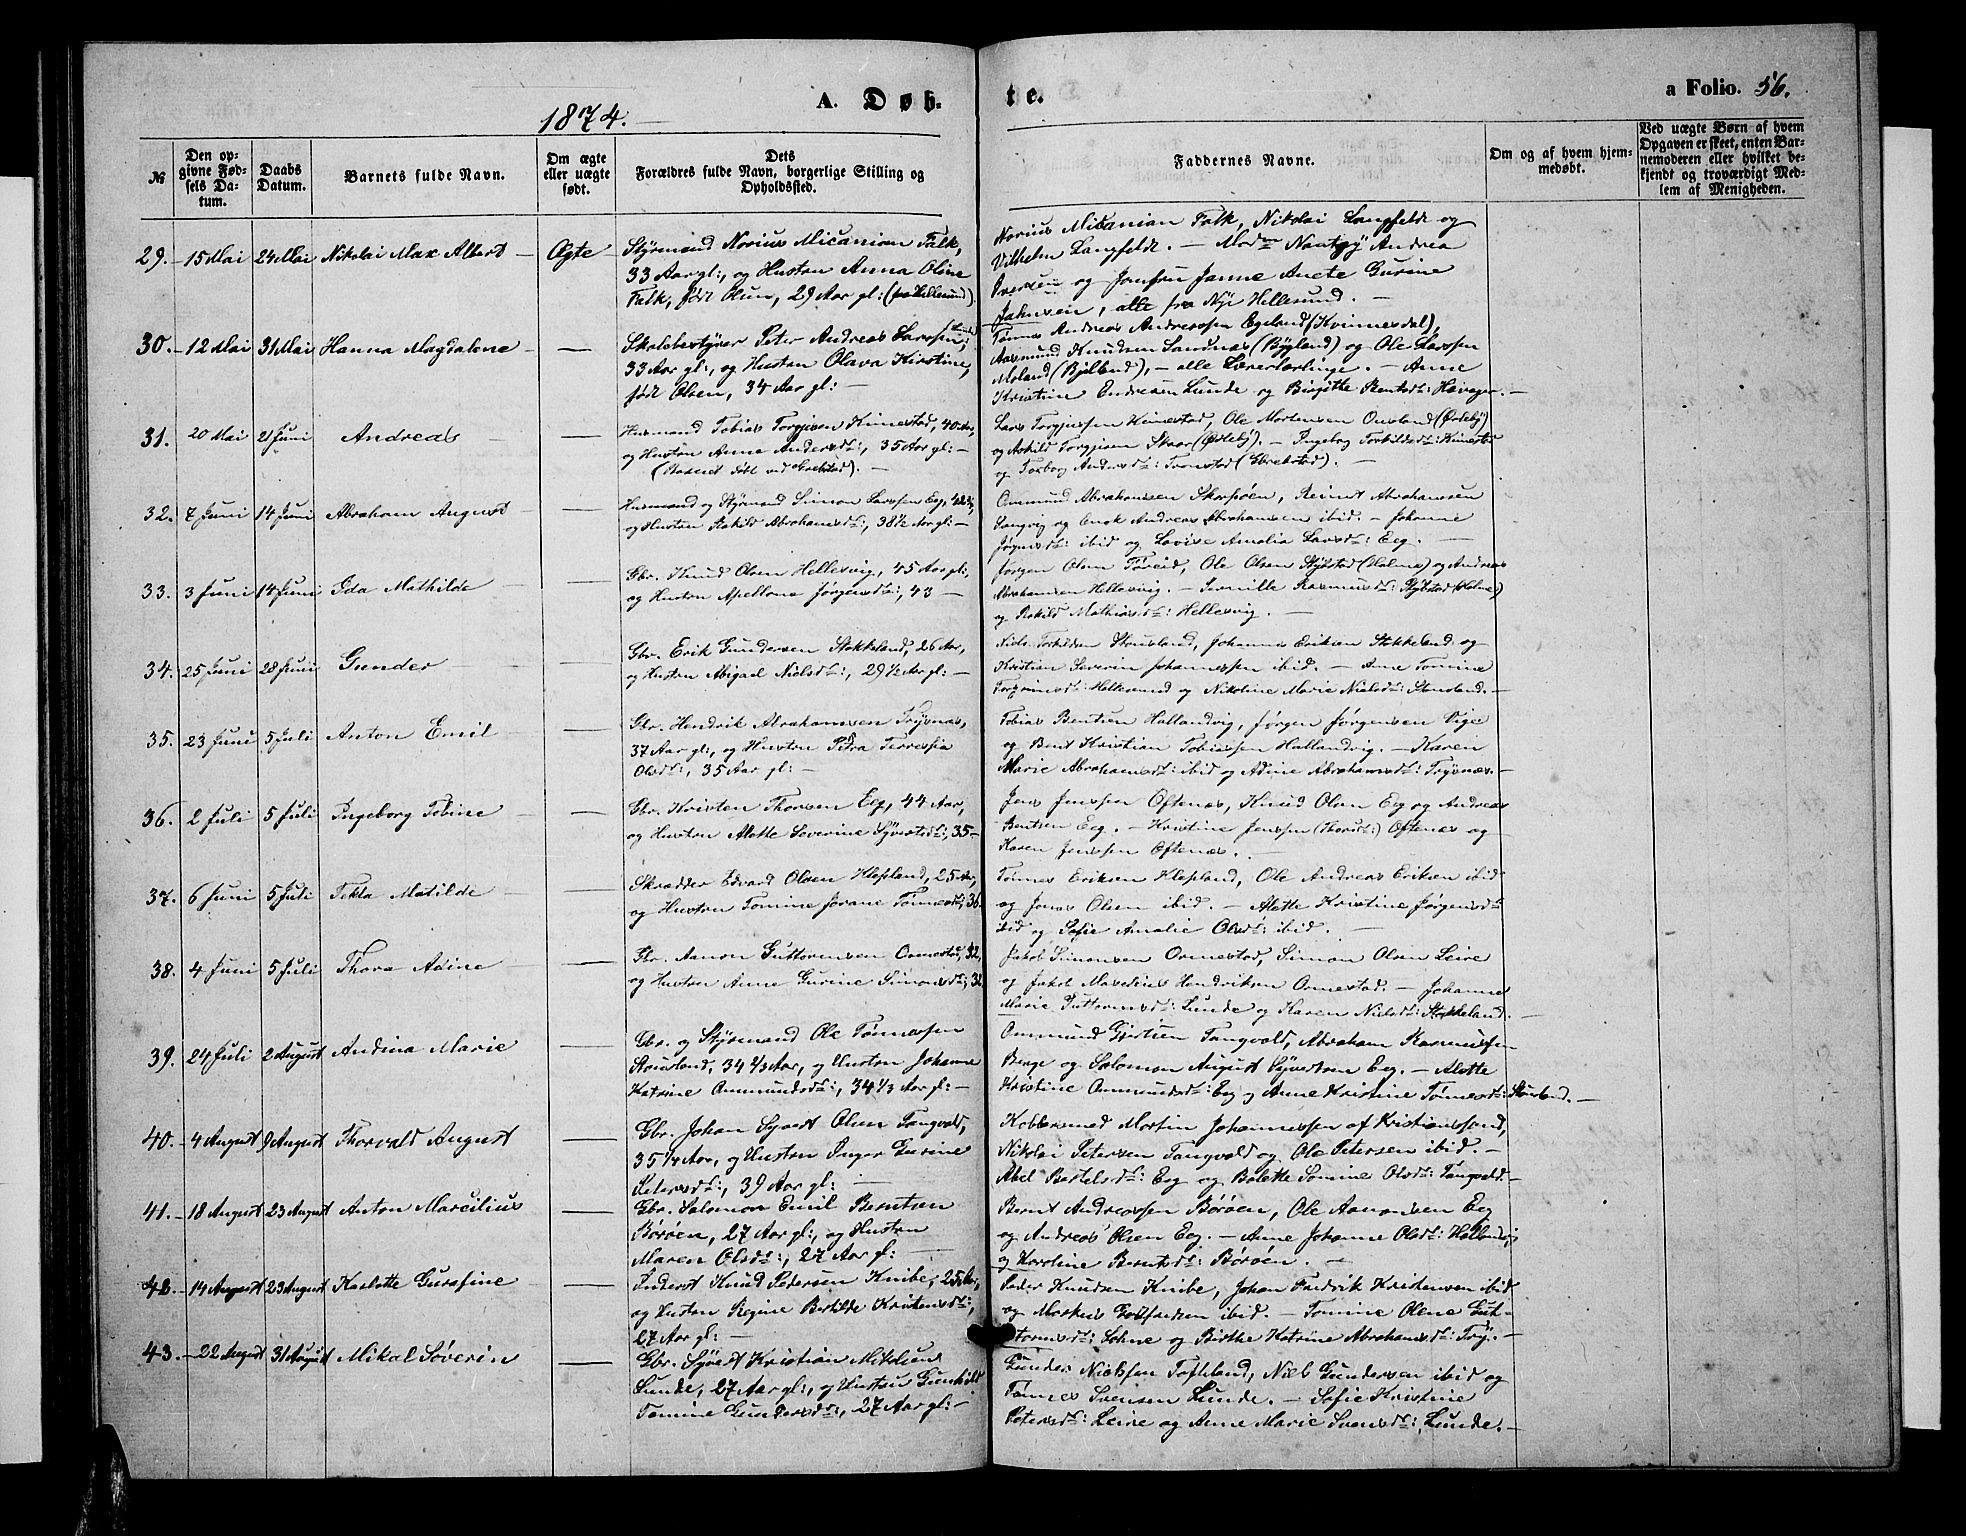 1874.
A. Døb-
te.
a Folio. 56.
№
Den op-
givne Fød-
sels Da-
tum.
Daabs
Datum.
Barnets fulde Navn.
Om ægte
eller uægte
født.
Dets
Forældres fulde Navn, borgerlige Stilling og
Opholdssted.
Faddernes Navne.
Om og af hvem hjem-
medøbt.
Ved uægte Børn af hvem
Opgaven er skeet, enten Bar-
nemoderen eller hvilket be-
kjendt og troværdigt Med-
lem af Menigheden.
29. 15 Mai 24 Mai Nikolai Max Albert Ægte
Styrmand Norius Micanian Falk,
33 Aar gl:, og Hustru Anna Oline
Falk, født Olsen, 29 Aar gl:
Norius Micanian Falk, Nikolai Langfeldt og
Vilhelm Langfeldt. — Andrea
Iversen og Jomfru Janne Anete Gurine
Jahnsen, alle fra Nye Hellesund. —
30. 12 Mai 31 Mai Hanna Magdalene —
Skolebestyrer Peter Andreas Larssen,
33 Aar gl:, og Hustru Olava Kirstine,
født Olsen, 34 Aar gl: —
Tønnes Andreas Andreassen Egeland (Kvinnesdal),
Aasmund Knudsen Sandnæs (Bygland) og Ole Larssen
Moland (Bjelland), — alle Lærerlærlinge. — Anne
Kristine Endresen Lunde og Birgitte Berntsdt: Havager. —
31. 20 Mai 21 Juni Andreas —
Husmand Tobias Torgjusen Kimestad, 40 Aar,
og Hustru Anna Andersdt:, 35 Aar gl: —
Lars Torgjussen Kimestad, Ole Mortensen Ousland (Øslebø)
og Askild Torgjusen Skaar (Øslebø). — Ingeborg Torkildsdt: Kimestad
og Torbor Andersdt: Tronstad (Grebstad). —
32. 7 Juni 14 Juni Abraham August —
Husmand og Styrmand Simon Larssen Eeg,
og Hustru Rakild Abrahamsdt:, 38½ Aar gl: —
Ommund Abrahamsen Skarpøen, Reinert Abrahamsen
Langvig og Enok Andreas Abrahamsen ibid. — Johanne
Jørgensdt: ibid og Lovise Amalia Larsdt: Eeg. —
33. 3 Juni 14 Juni Ida Mathilde —
Gbr. Knud Olsen Hellesvig, 45 Aar gl:,
og Hustru Apellone Jørgensdt:, 43 —
Jørgen Olsen Føreid, Ole Olsen Støbstad (Holme) og Andreas
Abrahamsen Hellesvig. — Pernille Rasmusdt: Støbstad (Holme)
og Rakild Mathiasdt: Hellesvig. —
34. 25 Juni 28 Juni Gunder —
Gbr. Erik Gundersen Stokkeland, 26 Aar,
og Hustru Abigael Nielsdt:, 29½ Aar gl: —
Niels Torkildsen Stousland, Johannes Eriksen Stokkeland og
Kristian Severin Johannessen ibid. — Ane Tomine
Torgrimsdt: Hellesund og Nikoline Marie Nielsdt: Stousland. —
35. 23 Juni 5 Juli Anton Emil —
Gbr. Hendrik Abrahamsen Trysnæs,
37 Aar gl:, og Hustru Petra Terresia
Olsdt:, 35 Aar gl: —
Tobias Bentsen Hallandvig, Jørgen Jørgensen Vige
og Bent Kristian Tobiassen Hallandvig. — Karen
Marie Abrahamsdt: ibid og Adine Abrahamsdt: Trysnæs. —
36. 2 Juli 5 Juli Ingeborg Tobine —
Gbr. Kristen Thorsen Eeg, 44 Aar,
og Hustru Alette Severine Syvertsdt:, 35 —
Jens Jenssen Oftenæs, Knud Olsen Eeg og Andreas
Bentsen Eeg. — Kristine Jenssen (Thorsdt:) Oftenæs og
Karen Jenssen Oftenæs. —
37. 6 Juni 5 Juli Tekla Matilde —
Skrædder Edvard Olsen Klepland, 25 Aar,
og Hustru Tomine Jorane Tønnesdt:, 36
Tønnes Eriksen Klepland, Ole Andreas Eriksen ibid
og Jonas Olsen ibid. — Alette Kristine Jørgensdt:
ibid og Sofie Amalie Olsdt: ibid. —
38. 4 Juni 5 Juli Thora Adine —
Gbr. Aanon Guttormsen Ormestad, 32,
og Hustru Anne Gurine Simonsdt:, 31
Jakob Simonsen Ormestad, Simon Olsen Leire
og Jakob Masedius Hendriksen Ormestad. — Johanne
Marie Guttormsdt: Lunde og Karen Nielsdt: Stokkeland. —
39. 24 Juli 2 August Andina Marie —
Gbr. og Styrmand Ole Tønnessen
Stousland, 34⅓ Aar, og Hustru Johanne
Katrine Ommundsdt:, 34⅓ Aar gl: —
Ommund Gjertsen Tangvald, Abraham Rasmussen
Berge og Salomon August Syvertsen Eeg. — Alette
Kristine Ommundsdt: Eeg og Anne Kristine Tønnesdt: Stousland. —
40. 4 August 9 August Thorvald August —
Gbr. Johan Syvert Olsen Tangvald,
35¼ Aar, og Hustru Inger Gurine
Petersdt:, 39 Aar gl: —
Kobbersmed Martin Johannessen af Kristianssand,
Nikolai Petersen Tangvald og Ole Petersen ibid. —
Abel Bertelsdt: Eeg og Bolette Tomine Olsdt: Tangvald. —
41. 18 August 23 August Anton Marcilius —
Gbr. Salomon Emil Berntsen
Borøen, 27 Aar gl:, og Hustru
Maren Olsdt:, 27 Aar gl: —
Bernt Andreassen Borøen, Ole Aanonsen Eeg
og Andreas Olsen Eeg. — Anne Johanne Olsdt: Hallandvig
og Karoline Berntsdt: Borøen. —
42. 14 August 23 August Karlotte Gurafine —
Inderst Knud Pedersen Knibe, 25 Aar,
og Hustru Regine Bertilde Kristensdt:,
27 Aar gl: —
Peder Knudsen Knibe, Johan Fredrik Kristensen ibid
og Markus Gotfredsen ibid. — Tomine Olene Gut-
tormsdt: Sohne og Birthe Katrine Abrahamsdt: Try. —
43. 22 August 31 August Mikal Søverin —
Gbr. Syvert Kristian Mikalsen
Lunde, 27 Aar gl:, og Hustru Gunhild
Tomine Gundersdt:, 27 Aar gl: —
Gunder Nielssen Tofteland, Niels Gundersen ibid og
Tønnes Svensen Lunde. — Sofie Kristine
Petersdt: Leire og Anne Marie Svensdt: Lunde. —